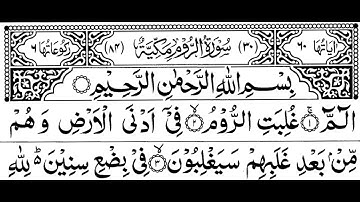 اٰيَاتُهَا ٦٠ (٣٠) سُوْرَةُ الرُّوْمِ مَكِّيَّةٌ (٨٤) رُكُوْعَاتُهَا ٦
بِسْمِ اللّٰهِ الرَّحْمٰنِ الرَّحِيْمِ
الٓمّٓ ۝١ غُلِبَتِ الرُّوْمُ ۝٢ فِيْۤ اَدْنَى الْاَرْضِ وَهُمْ
مِّنْۢ بَعْدِ غَلَبِهِمْ سَيَغْلِبُوْنَ ۝٣ فِيْ بِضْعِ سِنِيْنَ ؕ لِلّٰهِ